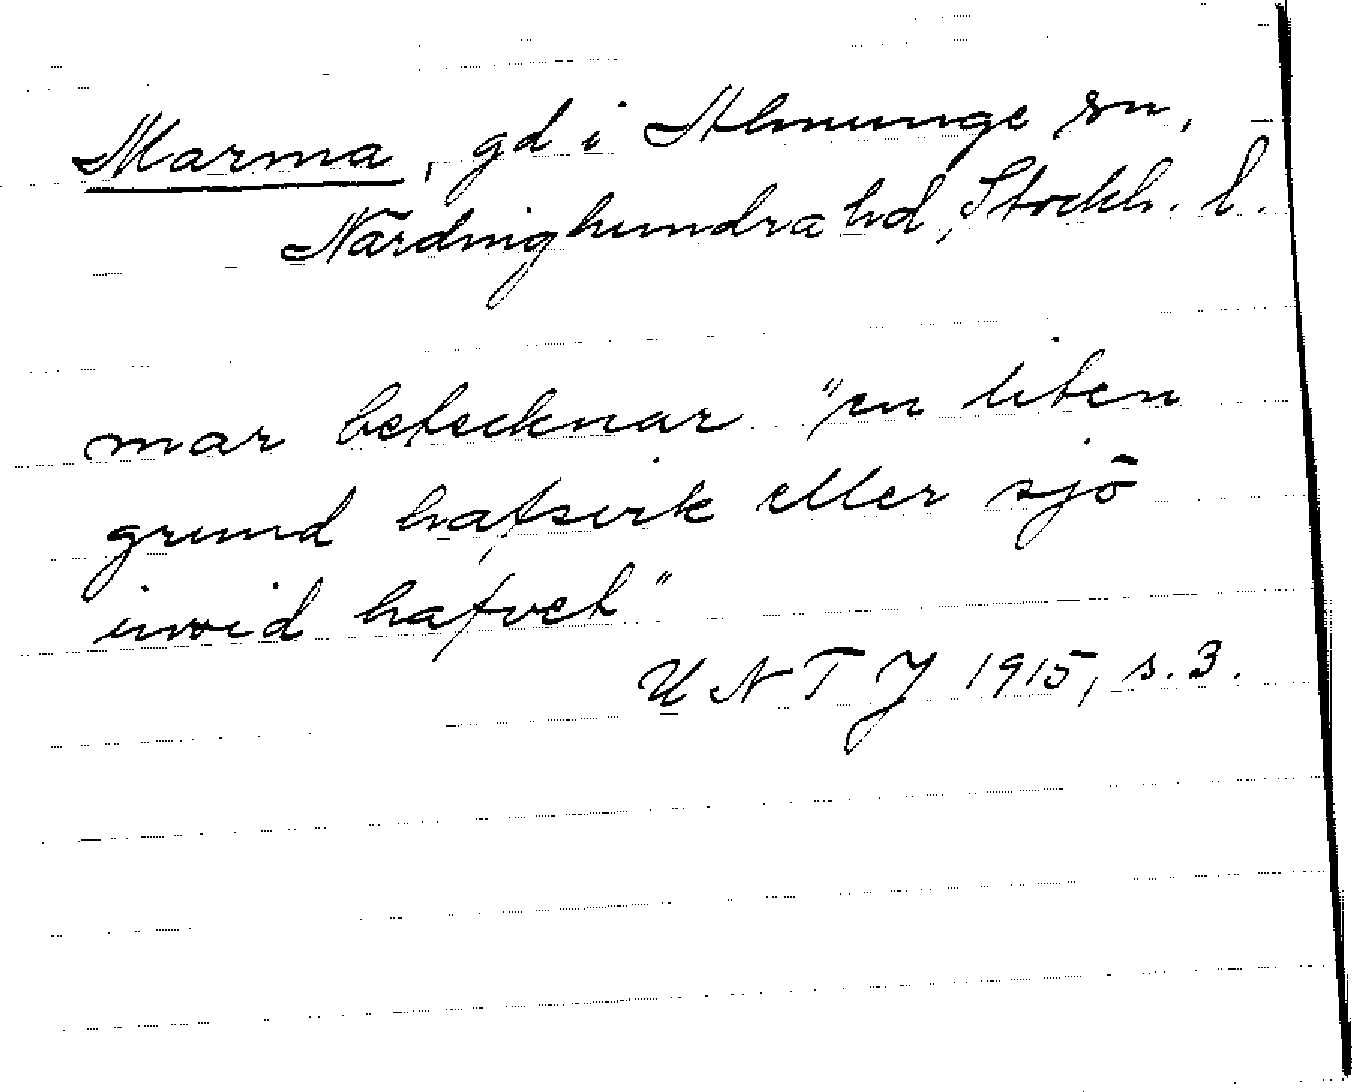 Marma, gd i Almunge sn,
Närdinghundra hd, Stockh. l.
mar betecknar "en liten
grund hafsvik eller sjö
invid hafvet"
U N T J 1915, s. 3.